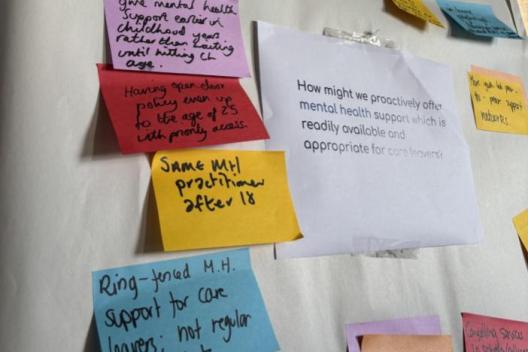 give mental health
support earlier in
childhood years
rather than waiting
until hitting
age.
Having open door
policy even up
to the age of 25
with priority access.
SAME MH
practitioner
after 18
Ring-fenced M.H.
support for care
leavers; not regular
How might we proactively offer
mental health support which is
readily available and
appropriate for care leavers?
peer support
networks
Counselling services